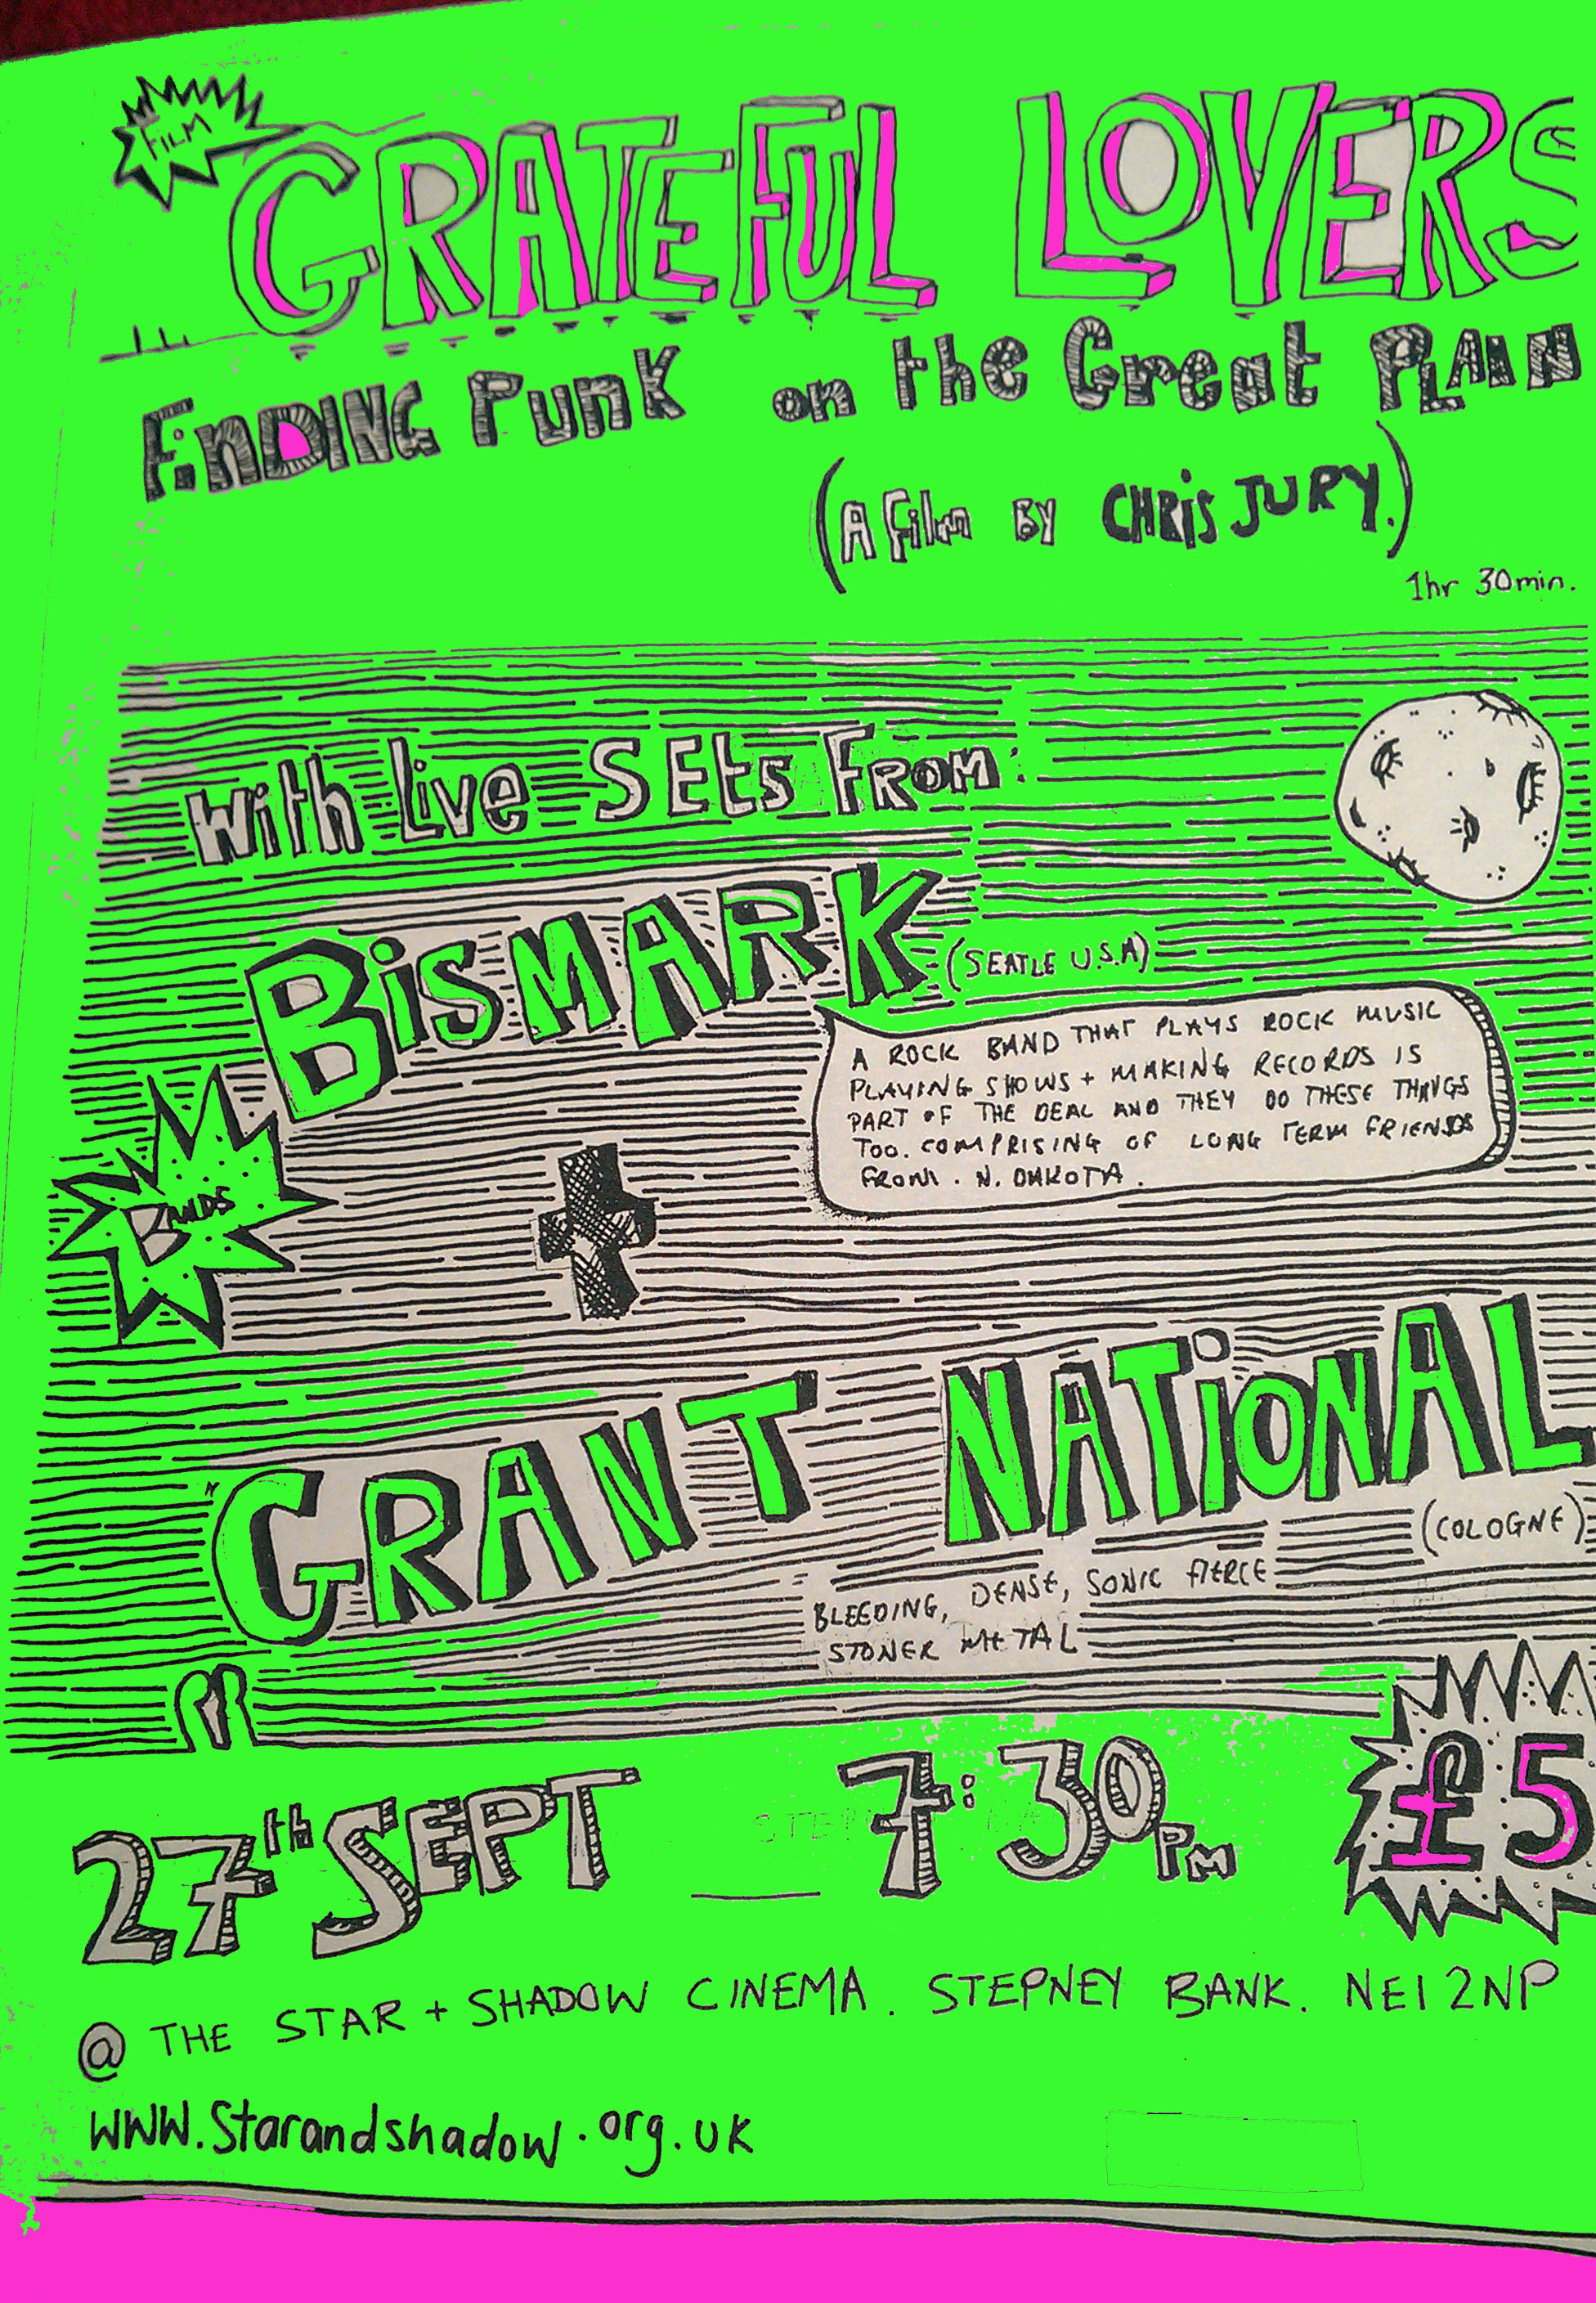 FILM
GRATEFUL LOVERS
ENDING PUNK on the Great PLAIN
(A Film BY CHRIS JURY.)
1hr 30min.
With Live SEts From:
BISMARK (SEATLE U.S.A)
A ROCK BAND THAT PLAYS ROCK MUSIC
PLAYING SHOWS + MAKING RECORDS IS
PART OF THE DEAL AND THEY DO THESE THINGS
TOO. COMPRISING OF LONG TERM FRIENDS
FROM . N. DAKOTA .
BANDS
+
GRANT NATIONAL
(COLOGNE)
BLEEDING, DENSE, SONIC FIERCE
STONER METAL
27th SEPT 7:30PM £5
@ THE STAR + SHADOW CINEMA. STEPNEY BANK. NE1 2NP
www.Starandshadow.org.uk